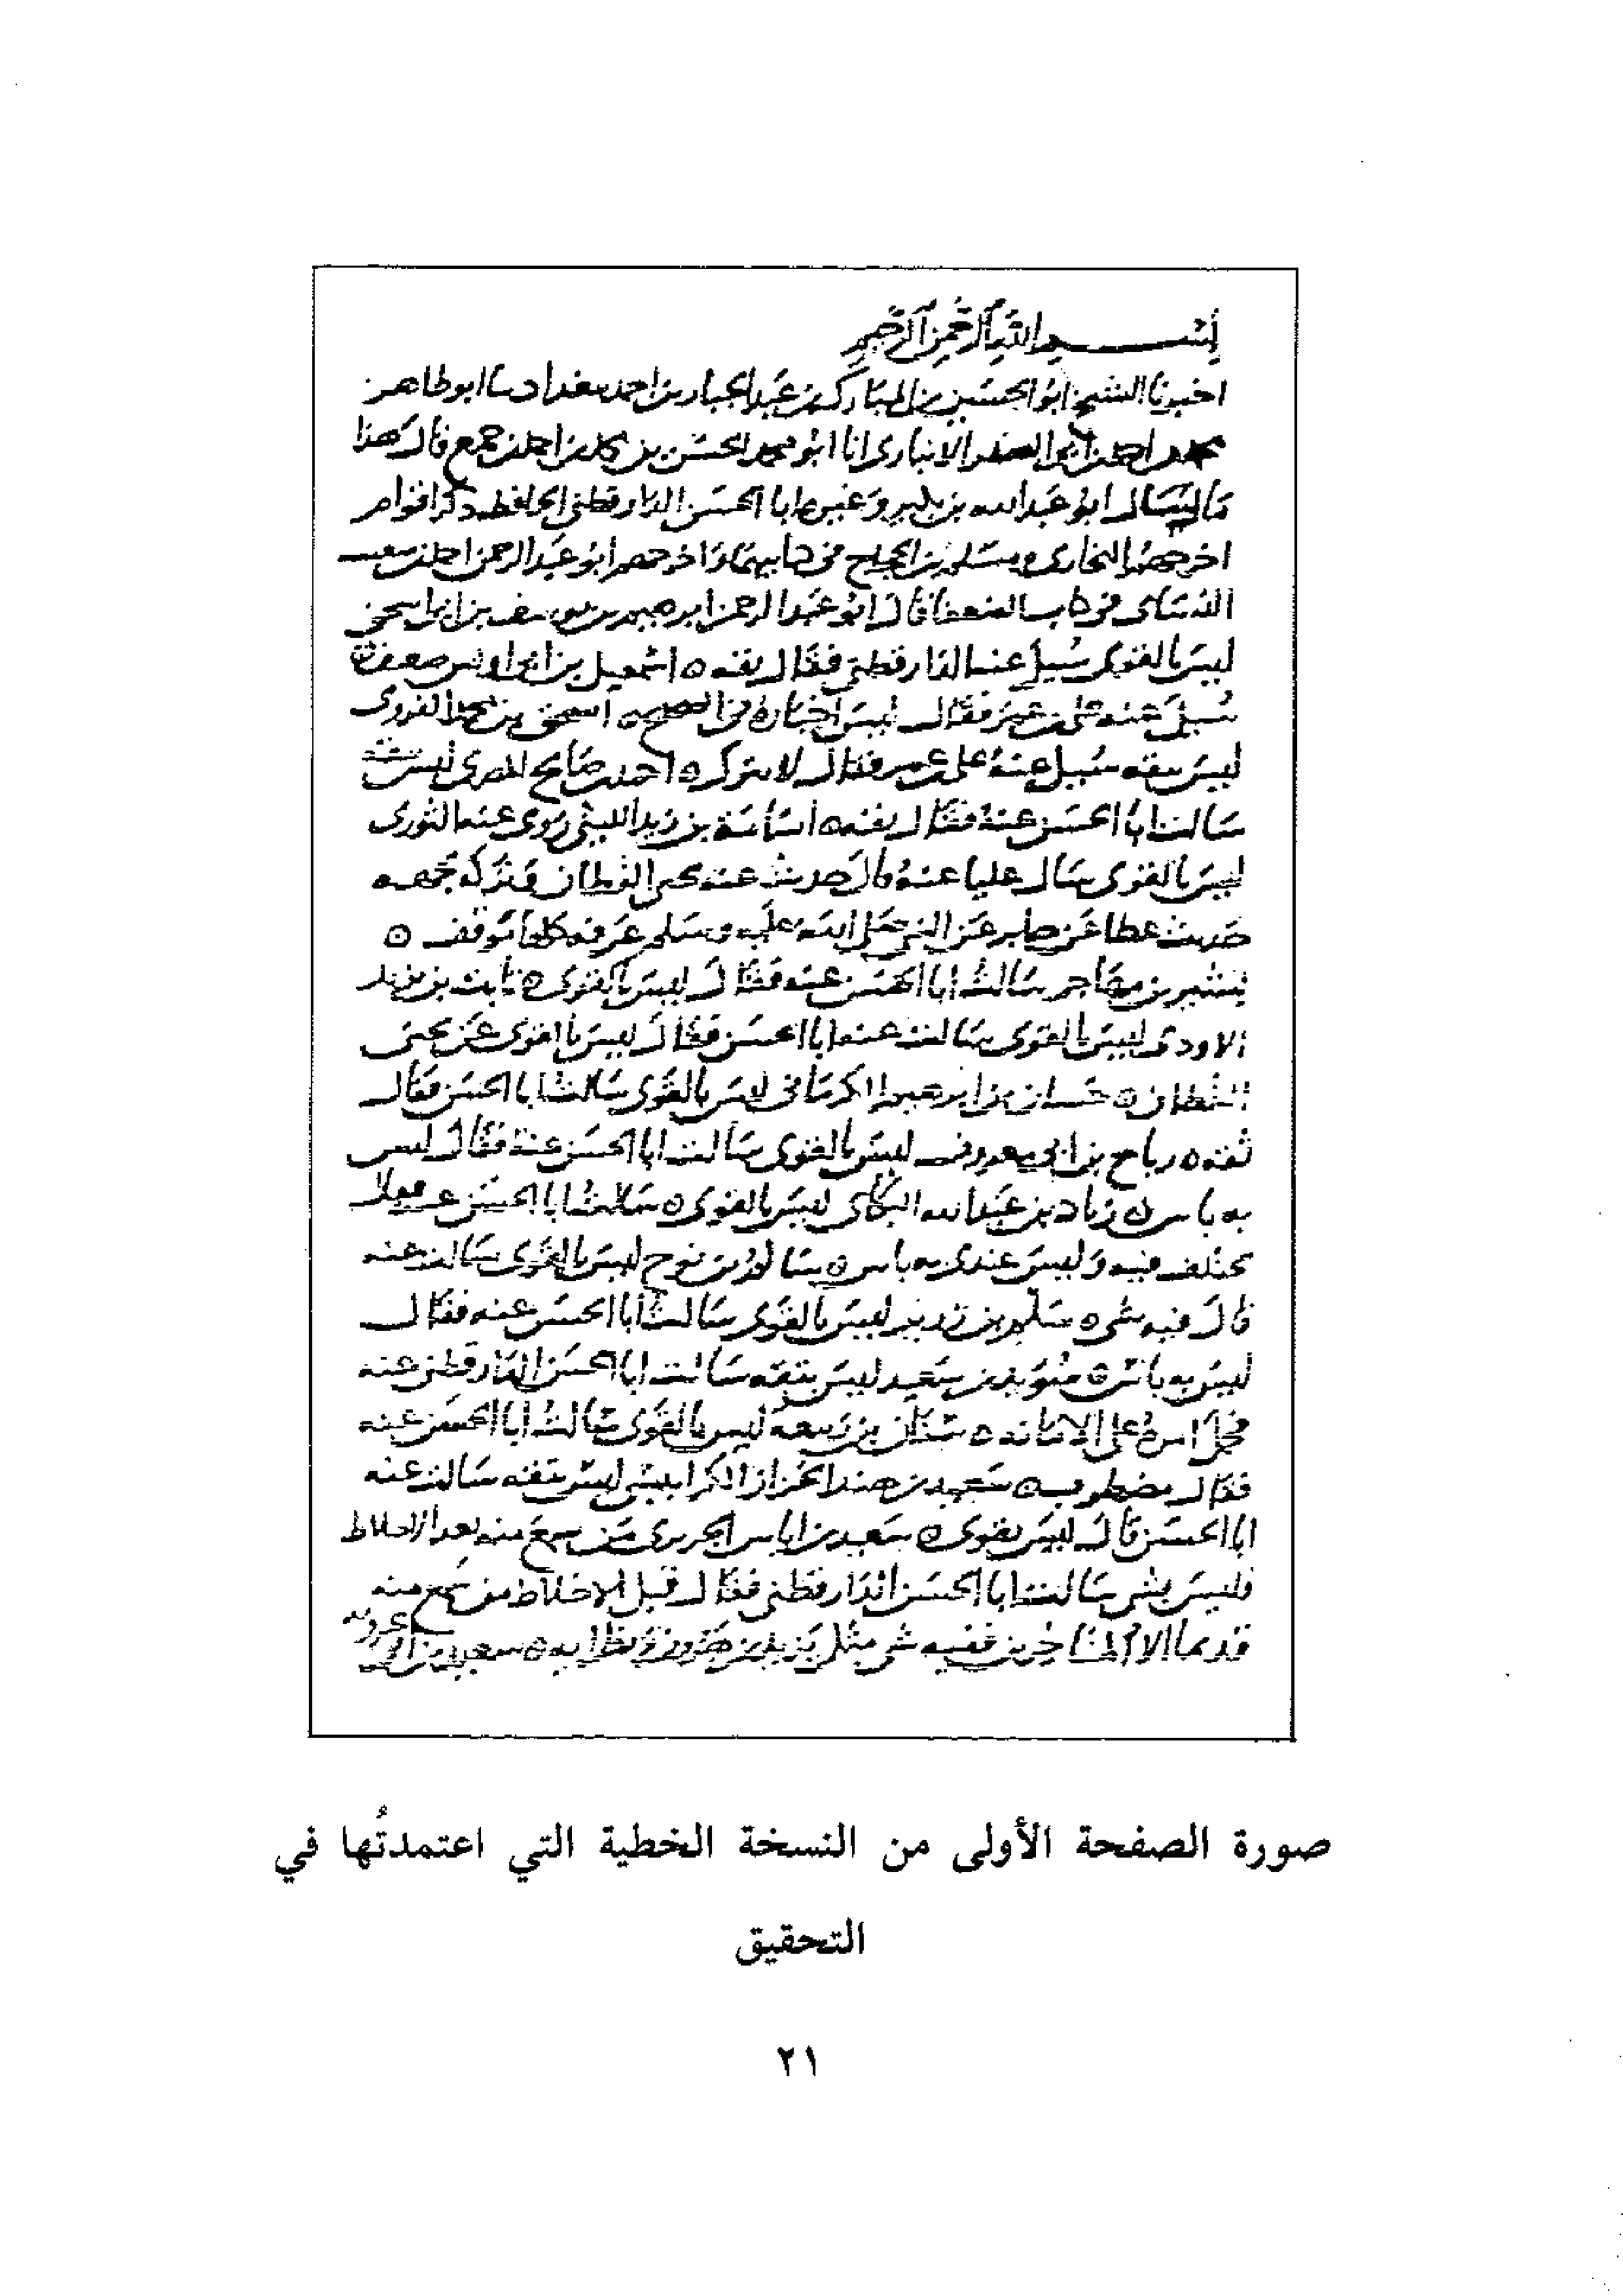 بسم الله الرحمن الرحيم
اخبرنا الشيخ ابو الحسين بن المبارك بن عبد الجبار بن احمد ببغداد ابو طاهر
محمد بن احمد بن ابي الصقر الانباري انا ابو محمد الحسن بن احمد بن جميع قال هذا
ما سال ابو عبد الله بن بكير وغيره ابا الحسن الدارقطني الحافظ ذكر اقوام
اخرجهم البخاري ومسلم بن الحجاج في كتابيهما واخرجهم ابو عبد الرحمن احمد بن شعيب
النساي في كتاب الضعفا قال ابو عبد الرحمن ابرهيم بن يوسف بن ابي اسحق
ليس بالقوي سيل عنه الدارقطني فقال ثقه ٥ اسمعيل بن ابي اويس ضعيف
سيل عنه علي بن عمر فقال ليس اختاره في الصحيح ٥ اسحق بن محمد الفروي
ليس بثقه سيل عنه علي بن عمر فقال لا يترك ٥ احمد بن صالح المصري ليس بثقه
سالت ابا الحسن عنه فقال ثقه ٥ اسامة بن زيد الليثي روى عنه الثوري
ليس بالقوي سال عليا عنه قال حدث عنه يحيى القطان وتركه جمعه
حديث عطا عن جابر عن النبي صلى الله عليه وسلم عرفه كلها موقف ٥
بشير بن مهاجر سالت ابا الحسن عنه فقال ليس بالقوي ٥ ثابت بن يزيد
الاودي ليس بالقوي سالت عنه ابا الحسن فقال ليس بالقوي عن يحيى
القطان ٥ حسان بن ابرهيم الكرماني ليس بالقوي سالت ابا الحسن فقال
ثقه ٥ رباح بن ابي معروف ليس بالقوي سالت ابا الحسن عنه فقال ليس
به باس ٥ زياد بن عبد الله البكائي ليس بالقوي ٥ سالت ابا الحسن عنه فقال
مختلف فيه وليس عندي به باس ٥ سالم بن نوح ليس بالقوي سالت عنه
قال فيه شي ٥ سلم بن زرير ليس بالقوي سالت ابا الحسن عنه فقال
ليس به باس ٥ سويد بن سعيد ليس بثقه سالت ابا الحسن الدارقطني عنه
فحمل امره على الامانه ٥ سنان بن ربيعه ليس بالقوي سالت ابا الحسن عنه
فقال مضطرب ٥ سعيد بن هند الخزاز الكرابيسي ليس بثقه سالت عنه
ابا الحسن قال ليس بقوي ٥ سعيد بن اياس الجريري من سمع منه بعد الاختلاط
فليس بشي سالت ابا الحسن الدارقطني فقال قبل الاختلاط من سمع منه
قديما الا المتاخرين ففيه شي مثل يزيد بن هرون ونظرايه ٥ سعيد بن ابي عروبه
صورة الصفحة الأولى من النسخة الخطية التي اعتمدتُها في
التحقيق
٢١